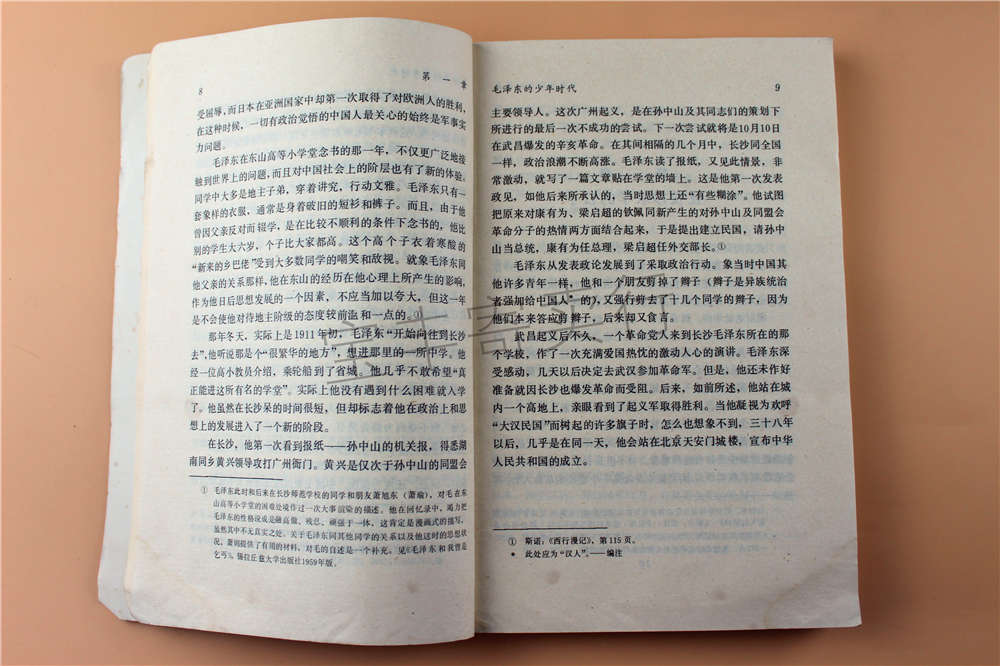 第一章
8
受屈辱，而日本在亚洲国家中却第一次取得了对欧洲人的胜利，
在这种时候，一切有政治觉悟的中国人最关心的始终是军事实
力问题。
毛泽东在东山高等小学堂念书的那一年，不仅更广泛地接
触到世界上的问题，而且对中国社会上的阶层也有了新的体验。
同学中大多是地主子弟，穿着讲究，行动文雅。毛泽东只有一
套象样的衣服，通常是身着破旧的短衫和裤子。而且，由于他
曾因父亲反对而辍学，是在比较不顺利的条件下念书的，他比
别的学生大六岁，个子比大家都高。这个高个子衣着寒酸的
“新来的乡巴佬”受到大多数同学的嘲笑和敌视。就象毛泽东同
他父亲的关系那样，他在东山的经历在他心理上所产生的影响，
作为他日后思想发展的一个因素，不应当加以夸大，但这一年
是不会使他对待地主阶级的态度较前温和一点的。①
那年冬天，实际上是1911年初，毛泽东“开始向往到长沙
去”，他听说那是个“很繁华的地方”，想进那里的一所中学。他
经一位高小教员介绍，乘轮船到了省城。他几乎不敢希望“真
正能进这所有名的学堂”。实际上他没有遇到什么困难就入学
了。他虽然在长沙呆的时间很短，但却标志着他在政治上和思
想上的发展进入了一个新的阶段。
在长沙，他第一次看到报纸——孙中山的机关报，得悉湖
南同乡黄兴领导攻打广州衙门。黄兴是仅次于孙中山的同盟会
① 毛泽东此时和后来在长沙师范学校的同学和朋友萧旭东（萧瑜），对毛在东
山高等小学堂的困难处境作过一次大事渲染的描述。他在回忆录中，竭力把
毛泽东的性格说成是融高傲、残忍、顽强于一体，这肯定是漫画式的描写，
虽然其中不无真实之处。关于毛泽东同其他同学的关系以及他这时的思想状
况，萧则提供了有用的材料，对毛的自述是一个补充。见《毛泽东和我曾是
乞丐》，锡拉丘兹大学出版社1959年版。
毛泽东的少年时代
9
主要领导人。这次广州起义，是在孙中山及其同志们的策划下
所进行的最后一次不成功的尝试。下一次尝试就将是10月10日
在武昌爆发的辛亥革命。在其间相隔的几个月中，长沙同全国
一样，政治浪潮不断高涨。毛泽东读了报纸，又见此情景，非
常激动，就写了一篇文章贴在学堂的墙上。这是他第一次发表
政见，如他后来所承认的，当时思想上还“有些糊涂”。他试图
把原来对康有为、梁启超的钦佩同新产生的对孙中山及同盟会
革命分子的热情两方面结合起来，于是提出建立民国，请孙中
山当总统，康有为任总理，梁启超任外交部长。①
毛泽东从发表政论发展到了采取政治行动。象当时中国其
他许多青年一样，他和一个朋友剪掉了辫子（辫子是异族统治
者强加给中国人*的），又强行剪去了十几个同学的辫子，因为
他们本来答应剪辫子，后来却又食言。
武昌起义后不久，一个革命党人来到长沙毛泽东所在的那
个学校，作了一次充满爱国热忱的激动人心的演讲。毛泽东深
受感动，几天以后决定去武汉参加革命军。但是，他还未作好
准备就因长沙也爆发革命而受阻。后来，如前所述，他站在城
内一个高地上，亲眼看到了起义军取得胜利。当他凝视为欢呼
“大汉民国”而树起的许多旗子时，怎么也想象不到，三十八年
以后，几乎是在同一天，他会站在北京天安门城楼，宣布中华
人民共和国的成立。
① 斯诺：《西行漫记》，第115页。
* 此处应为“汉人”。——编注